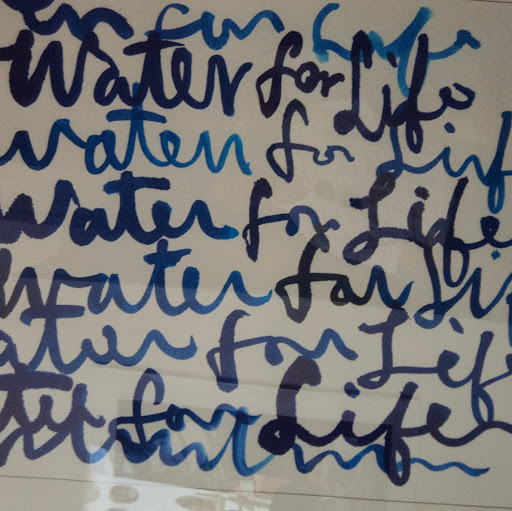 for Life
Water for Life
water for Life
water for Life
water for Life
ater for Life
for Life